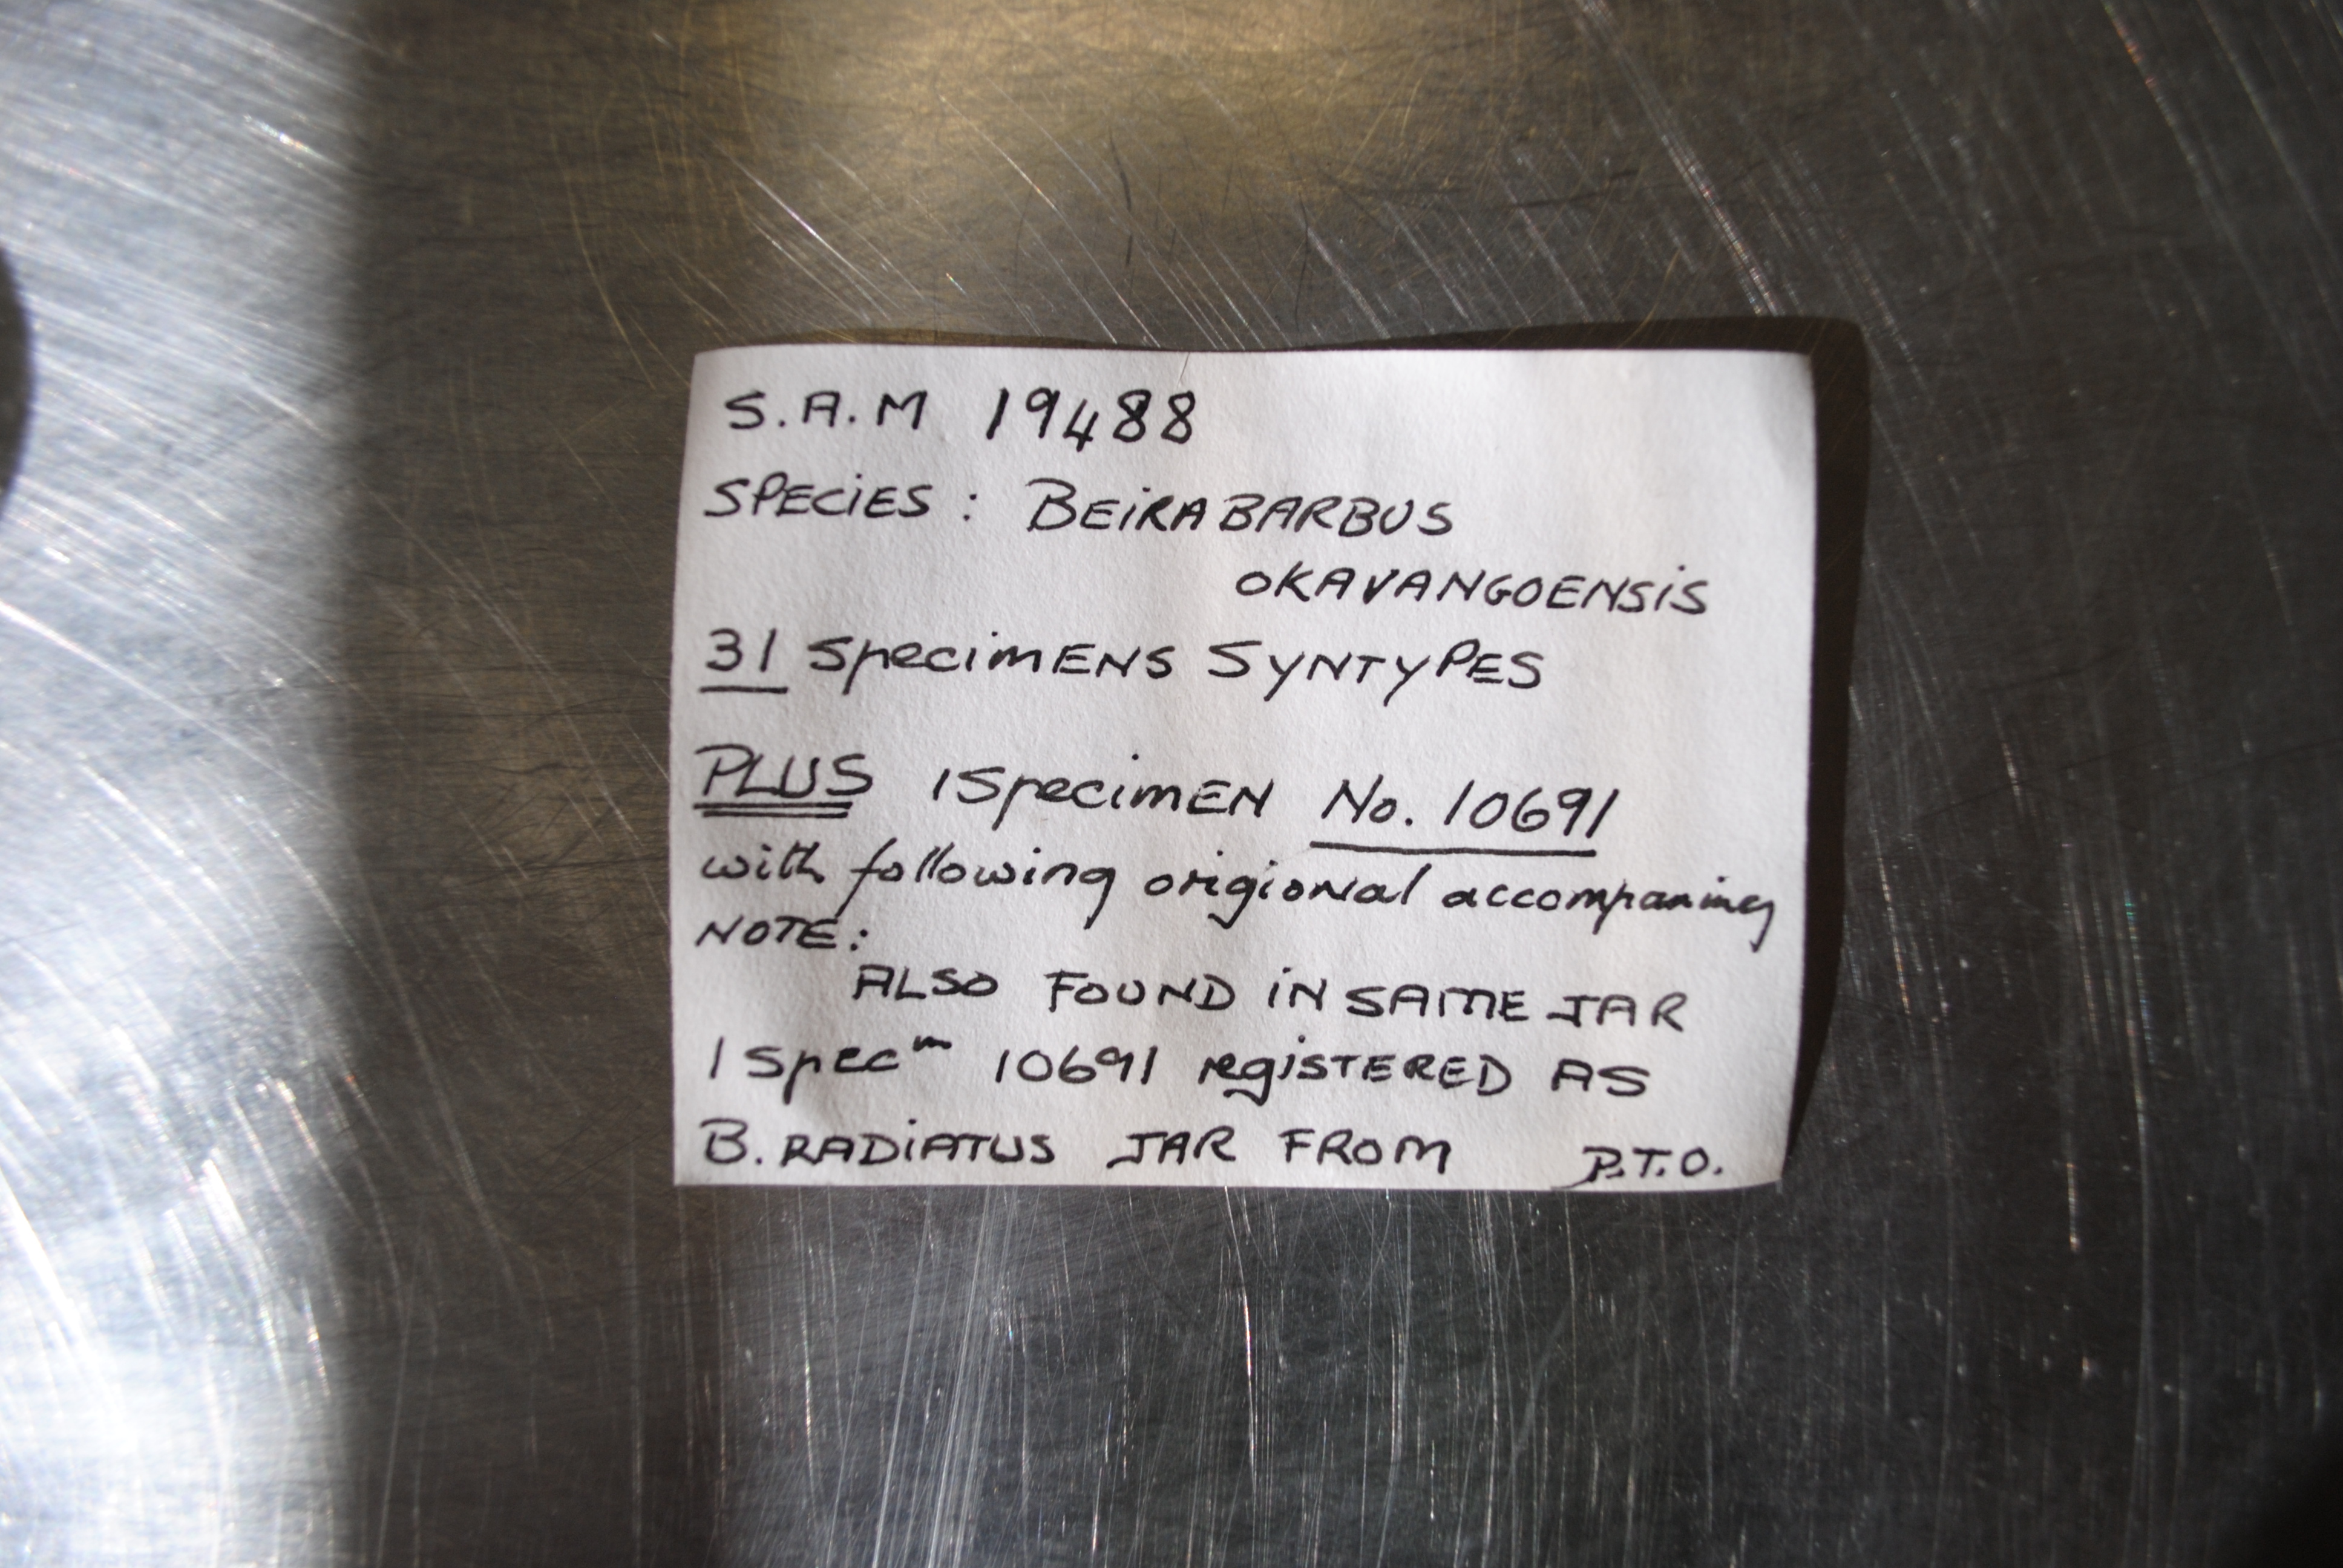 S.A.M 19488
SPECIES : BEIRABARBUS
OKAVANGOENSIS
31 SPECIMENS SYNTYPES
PLUS 1 SPECIMEN No. 10691
with following origional accompaning
NOTE:
ALSO FOUND IN SAME JAR
1 specᵐ 10691 REGISTERED AS
B. RADIATUS JAR FROM P.T.O.